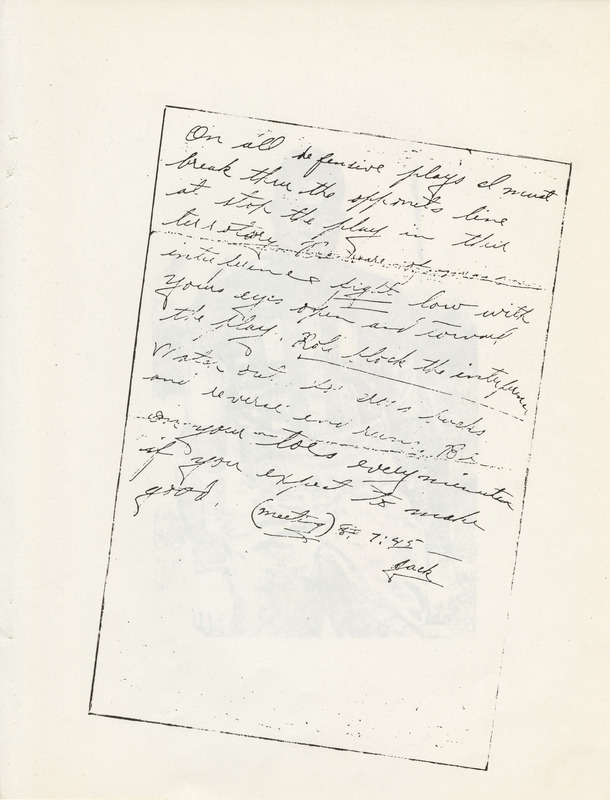 On all defensive plays I must
break thru the opponets line
at stop the play in their
territory Beware of mass
interference fight low with
yours eyes open and toward
the play. Role block the interference
Watch out for cross bucks
and reverse end runs. Be
on your toes every minute
if you expect to make
good.
(meeting) 8= 7:45
Jack